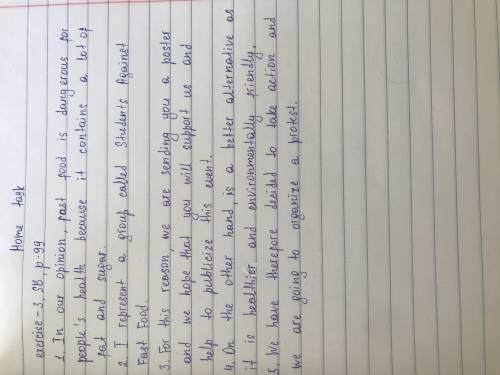 Home task
exercise - 3, SB, p-99
1. In our opinion, fast food is dangerous for
people's health because it contains a lot of
fat and sugar.
2. I represent a group called Students Against
Fast Food.
3. For this reason, we are sending you a poster
and we hope that you will support us and
help to publicize this event.
4. On the other hand, is a better alternative as
it is healthier and environmentally friendly.
5. We have therefore decided to take action and
we are going to organize a protest.